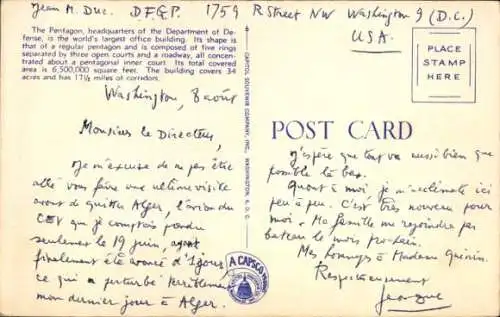 Jean M. Duc. D.F.G.P. 1759 R. Street NW Washington 9 (D.C.)
USA.
The Pentagon, headquarters of the Department of De-
fense, is the world's largest office building. Its shape is
that of a regular pentagon and is composed of five rings
separated by three open courts and a roadway, all concen-
trated about a pentagonal inner court. Its total covered
area is 6,500,000 square feet. The building covers 34
acres and has 17½ miles of corridors.
Washington, 8 août
Monsieur le Directeur,
Je m'excuse de ne pas être
allé vous faire une ultime visite
avant de quitter Alger, l'avion du
que je comptais prendre
seulement le 19 juin, ayant
finalement été avancé d'1 jour,
ce qui a perturbé terriblement
mon dernier jour à Alger.
CAPITOL SOUVENIR COMPANY, INC., WASHINGTON, D. C.
A CAPSCO
PLACE
STAMP
HERE
POST CARD
J'espère que tout va aussi bien que
possible là bas.
Quant à moi, je m'acclimate ici
peu à peu. C'est très nouveau pour
moi. Ma famille me rejoindra par
bateau le mois prochain.
Mes hommages à Madame
Respectueusement